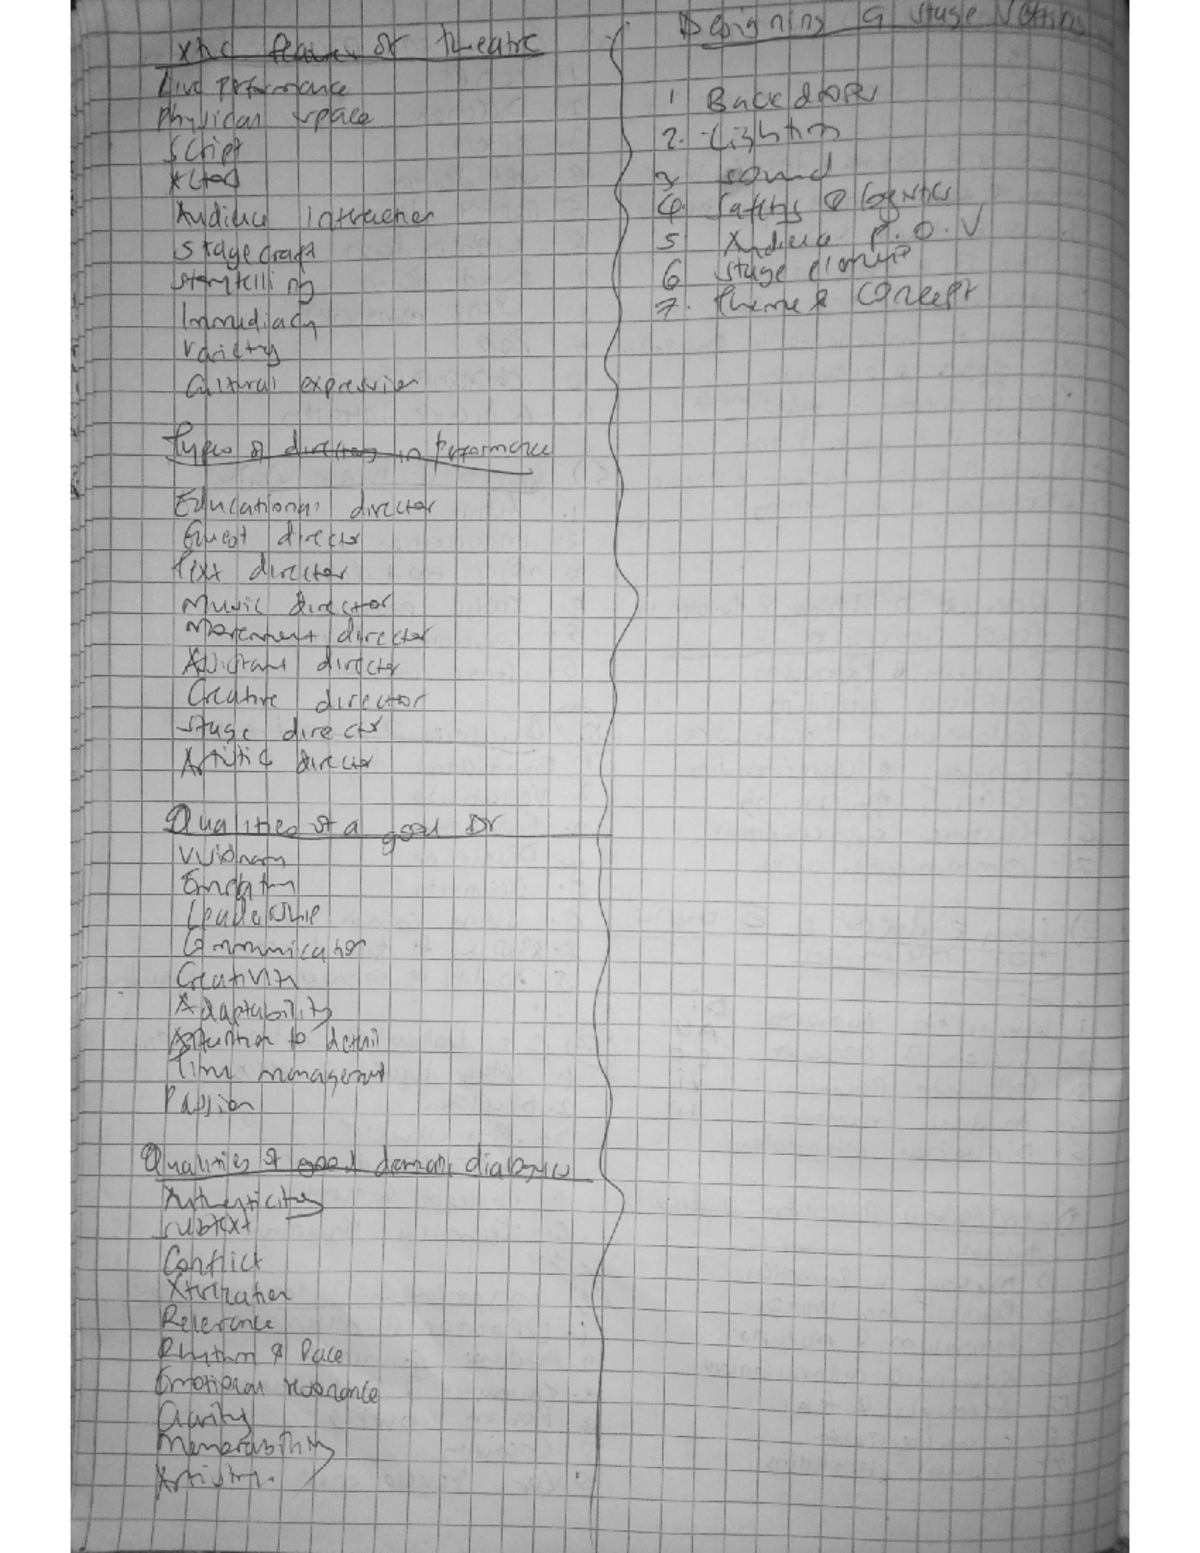 Xtic features of theatre
Live performance
Physical space
Script
Actors
Audience interaction
Stagecraft
Storytelling
Immediacy
Variety
Cultural expression
Types of directors in Performance
Educational director
Guest director
Text director
Music director
Movement director
Assistant director
Creative director
Stage director
Artistic director
Qualities of a good Dr
Visionary
Empathy
Leadership
Communicator
Creativity
Adaptability
Attention to detail
Time management
Passion
Qualities of good dramatic dialogue
Authenticity
Subtext
Conflict
Xterization
Relevance
Rhythm & Pace
Emotional resonance
Clarity
Memorability
Artistry.
Designing a stage setting
1 Backdrops
2. Lighting
3 sound
4 safety & logistics
5 Audience P.O.V
6 stage element
7. theme & Concept